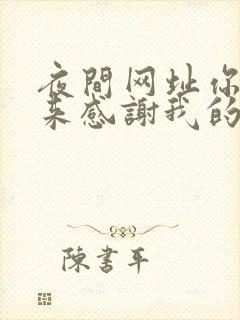 夜間网址你
来感謝我的
陳書平